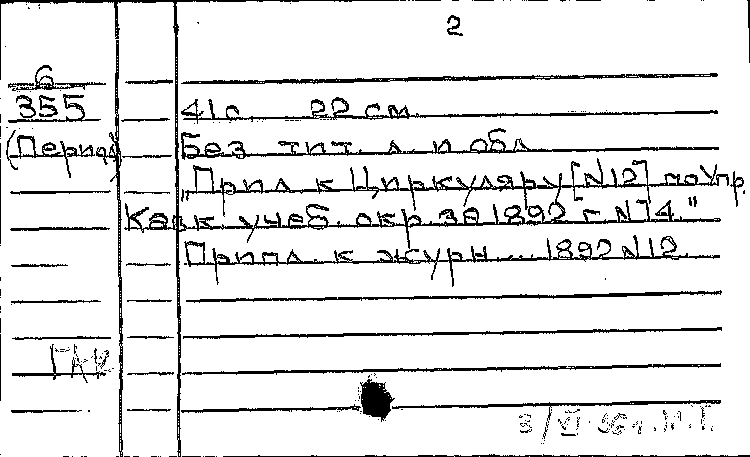 2
6
355
41 с. 22 см.
(Период)
Без тит. л. и обл
"Прил. к Циркуляру [N12] по Упр.
Кавк. учеб. окр. за 1892 г. N 14."
Прил. к журн... 1892 N12.
ГАК
3/VI-56 г. Н.Г.